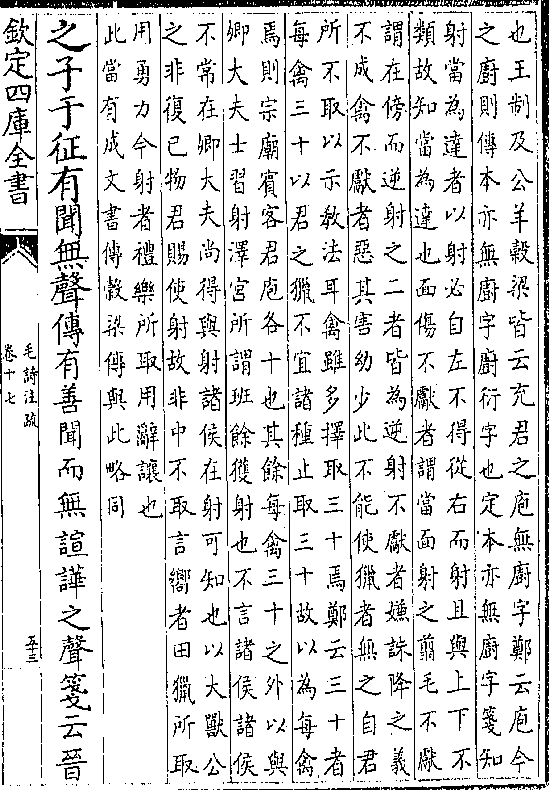 也王制及公羊穀梁皆云充君之庖無廚字鄭云庖今
之廚則傳本亦無廚字廚衍字也定本亦無廚字箋知
射當為達者以射必自左不得從右而射且與上下不
類故知當為達也面傷不獻者謂當面射之翦毛不獻
謂在傍而逆射之二者皆為逆射不獻者嫌誅降之義
不成禽不獻者惡其害幼少此不能使獵者無之自君
所不取以示教法耳禽雖多擇取三十焉鄭云三十者
每禽三十以君之獵不宜諸種止取三十故以為每禽
焉則宗廟賓客君庖各十也其餘每禽三十之外以與
卿大夫士習射澤宮所謂班餘獲射也不言諸侯諸侯
不常在卿大夫尚得與射諸侯在射可知也以大獸公
之非復已物君賜使射故非中不取言嚮者田獵所取
用勇力今射者禮樂所取用辭讓也
此當有成文書傳穀梁傳與此略同
之子于征有聞無聲傳有善聞而無諠譁之聲箋云晉
欽定四庫全書
毛詩注疏
卷十七
五十三